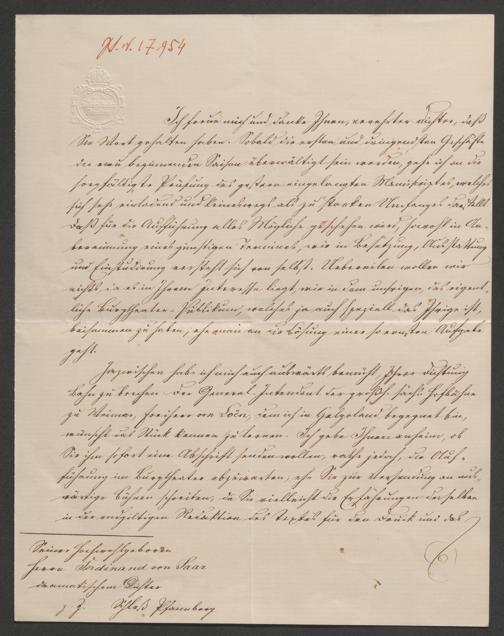 J.N. 17.954
Ich freue mich und danke Ihnen, verehrter Dichter, daß
Sie Wort gehalten haben. Sobald die ersten und dringendsten Geschäfte
der neu beginnenden Saison überwältigt sein werden, gehe ich an die
sorgfältigste Prüfung des gestern eingelangten Manuskriptes, welches
sich sehr einladend und keineswegs als zu starken Umfanges darstellt.
Daß für die Aufführung alles Mögliche geschehen wird, sowohl in An-
beraumung eines günstigen Termines, wie in Besetzung, Ausstattung
und Einstudirung versteht sich von selbst. Uebereilen wollen wir
nichts, da es in Ihrem Interesse liegt, wie in dem unsrigen, das eigent-
liche Burgtheater-Publikum, welches ja auch speziell das Ihrige ist,
beisammen zu haben, ehe man an die Lösung einer so ernsten Aufgabe
geht.
Inzwischen habe ich mich auch auswärts bemüht, Ihrer Dichtung
Bahn zu brechen. Der General Intendant der großh. sächs. Hofbühne
zu Weimar, Freiherr von Loën, dem ich in Gastein begegnet bin,
wünscht das Stück kennen zu lernen. Ich gebe Ihnen anheim, ob
Sie ihm sofort eine Abschrift senden wollen, rathe jedoch, die Auf-
führung im Burgtheater abzuwarten, ehe Sie zur Versendung an aus-
wärtige Bühnen schreiten, da Sie vielleicht die Erfahrungen derselben
in der endgiltigen Redaktion des Textes für den Druck und das
Seiner Hochwohlgeboren
Herrn Ferdinand von Saar
dramatischem Dichter
z. Z. Schloß Pfannberg